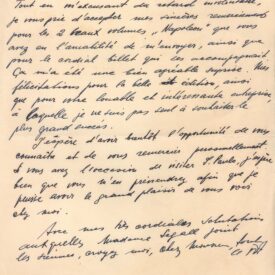 Tout en m'excusant du retard involontaire,
je vous prie d'accepter mes sincères remerciements
pour les 2 beaux volumes, "Napoléon" que vous
avez eu l'amabilité de m'envoyer, ainsi que
pour le cordial billet qui les accompagnait.
Ça m'a été une bien agréable surprise. Mes
félicitations pour la belle édition ainsi
que pour votre louable et intéressante entreprise
à laquelle je ne suis pas seul à souhaiter le
plus grand succès.
J'espère d'avoir bientôt l'opportunité de vous
connaître et de vous remercier personnellement.
Si vous avez l'occasion de visiter S. Paulo, j'espère
bien que vous m'en préviendrez afin que je
puisse avoir le grand plaisir de vous voir
chez moi.
Avec mes très cordiales salutations
auxquelles Madame Segall joint
les siennes, croyez moi, cher Monsieur,